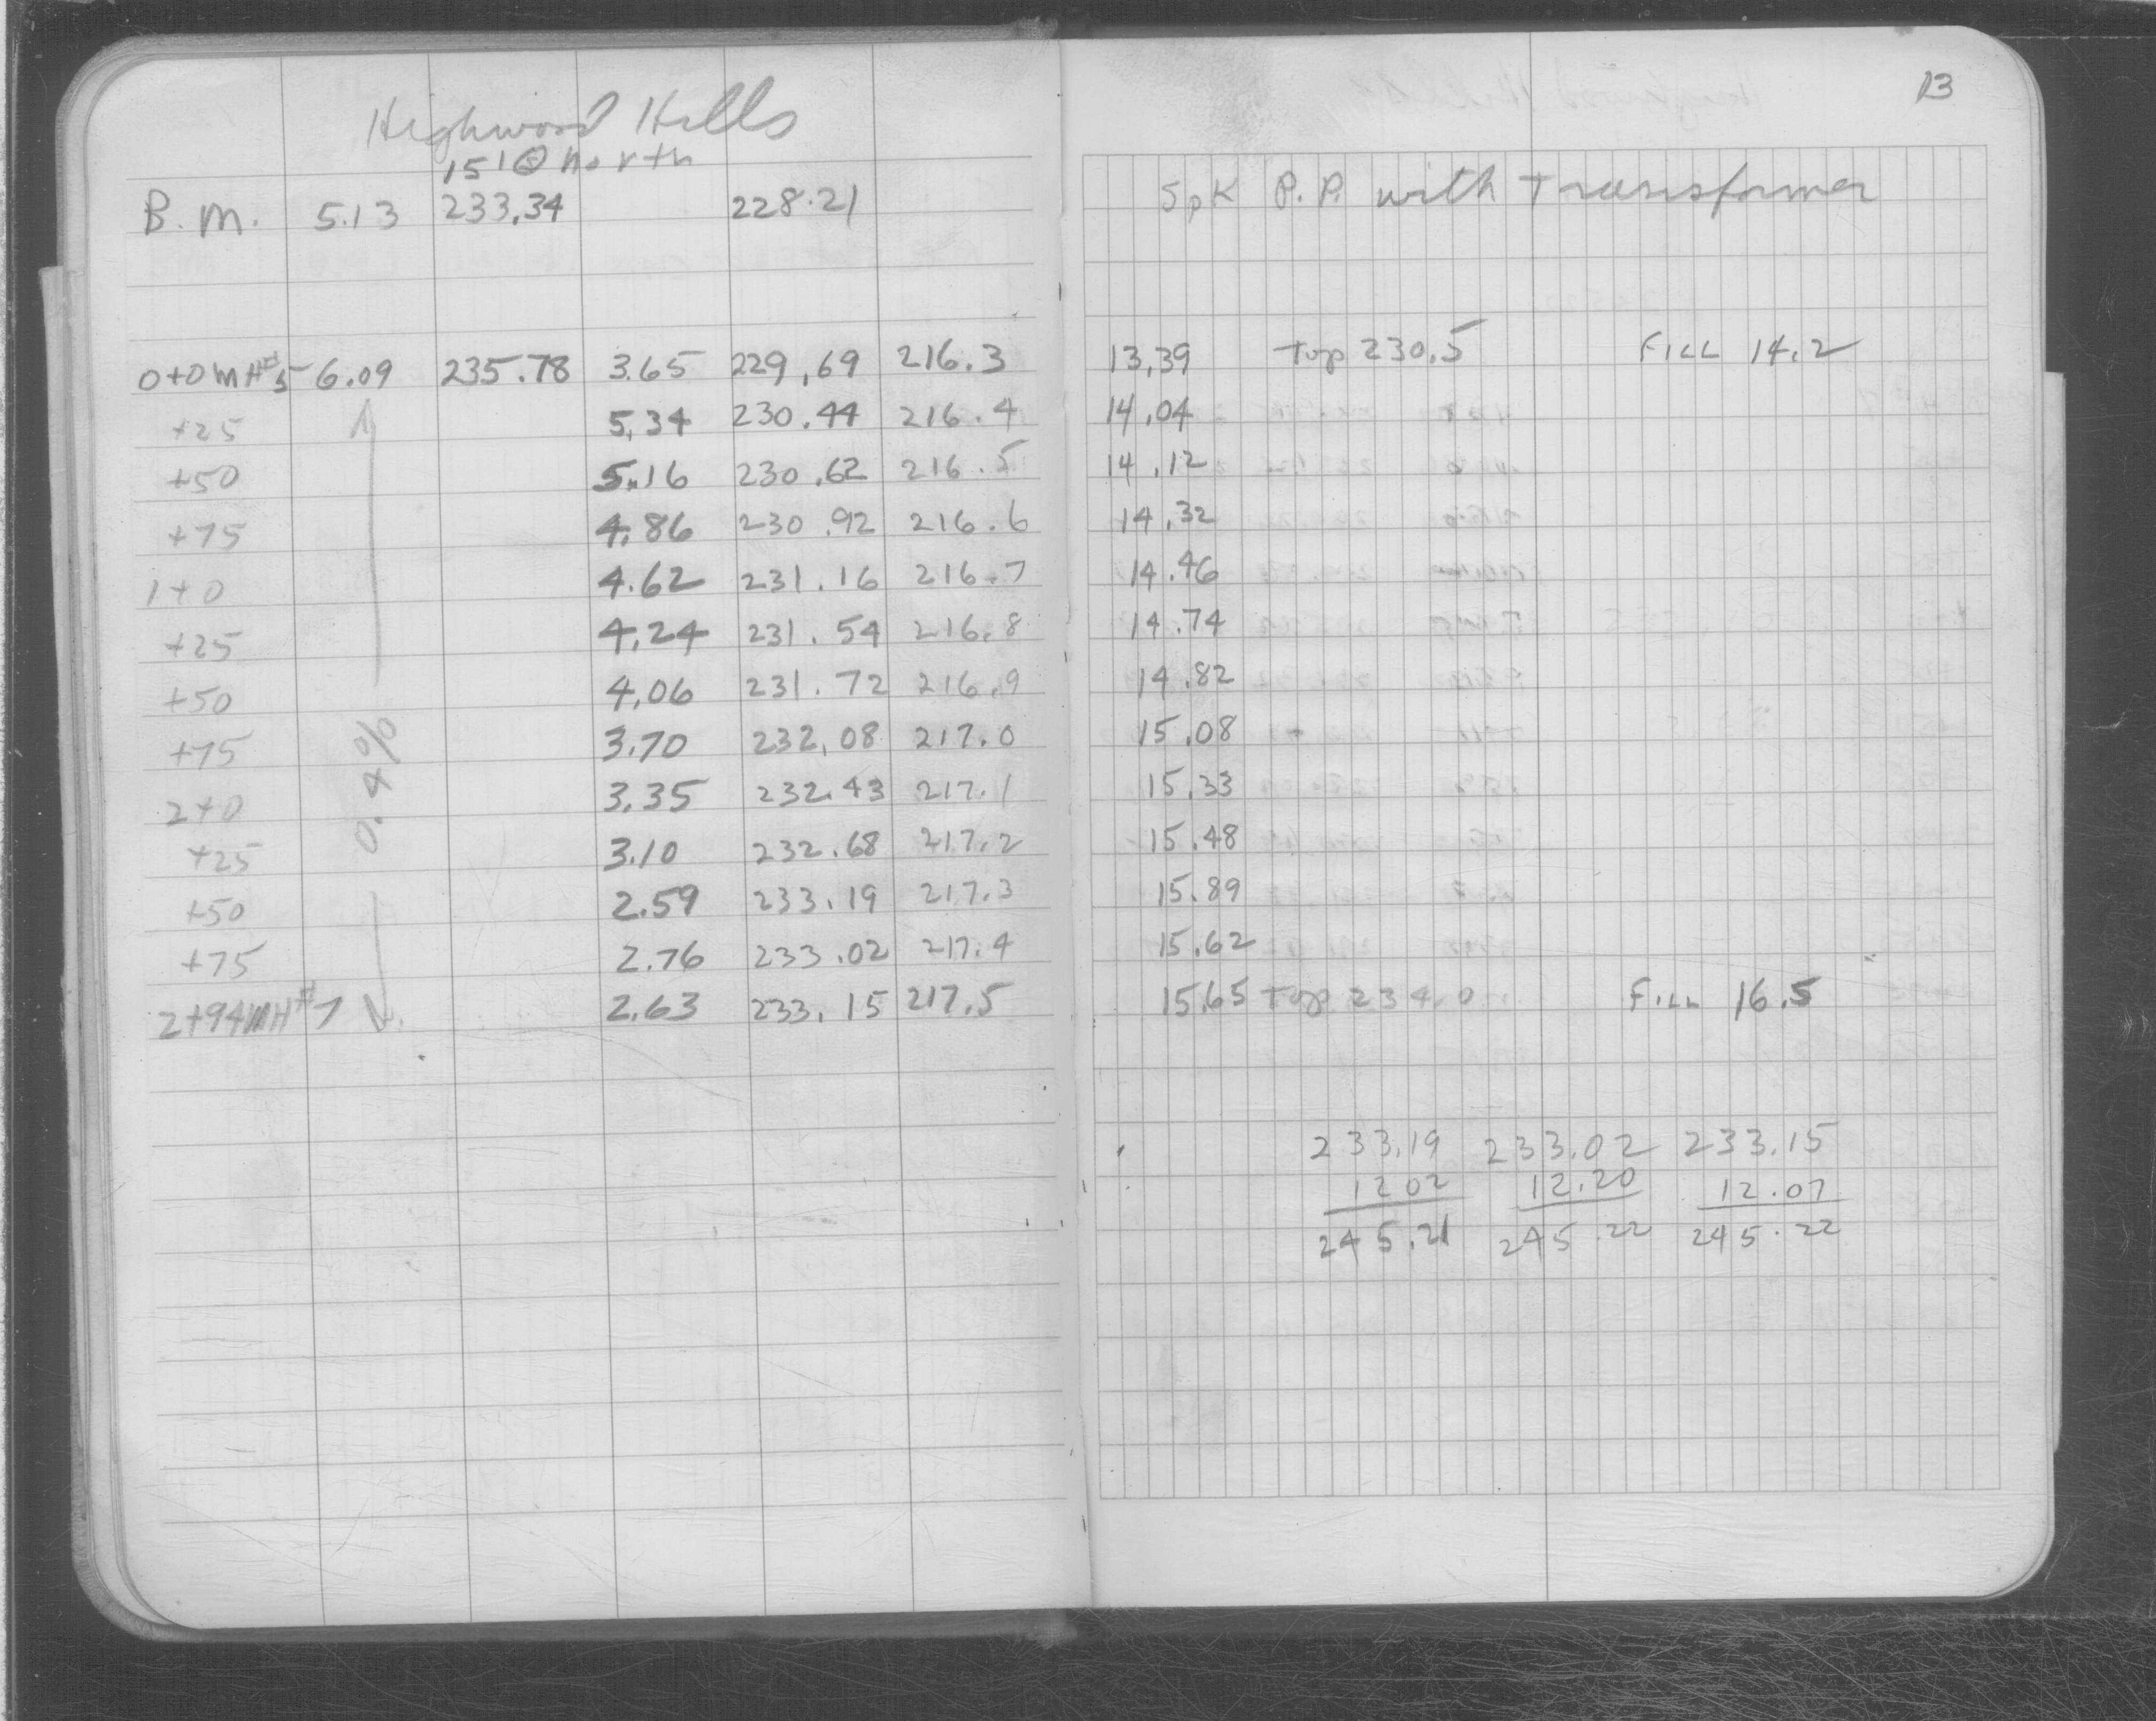 13
Highwood Hills
15' @ north
B.M. 5.13 233.34 228.21 SpK P.P. with Transformer
0+0 MH#5 6.09 235.78 3.65 229.69 216.3 13.39 Top 230.5 FILL 14.2
+25 5.34 230.44 216.4 14.04
+50 5.16 230.62 216.5 14.12
+75 4.86 230.92 216.6 14.32
1+0 4.62 231.16 216.7 14.46
+25 4.24 231.54 216.8 14.74
+50 4.06 231.72 216.9 14.82
+75 0.4% 3.70 232.08 217.0 15.08
2+0 3.35 232.43 217.1 15.33
+25 3.10 232.68 217.2 15.48
+50 2.59 233.19 217.3 15.89
+75 2.76 233.02 217.4 15.62
2+94 MH#7 2.63 233.15 217.5 15.65 Top 234.0 FILL 16.5
233.19 233.02 233.15
12 02 12.20 12.07
245.21 245.22 245.22